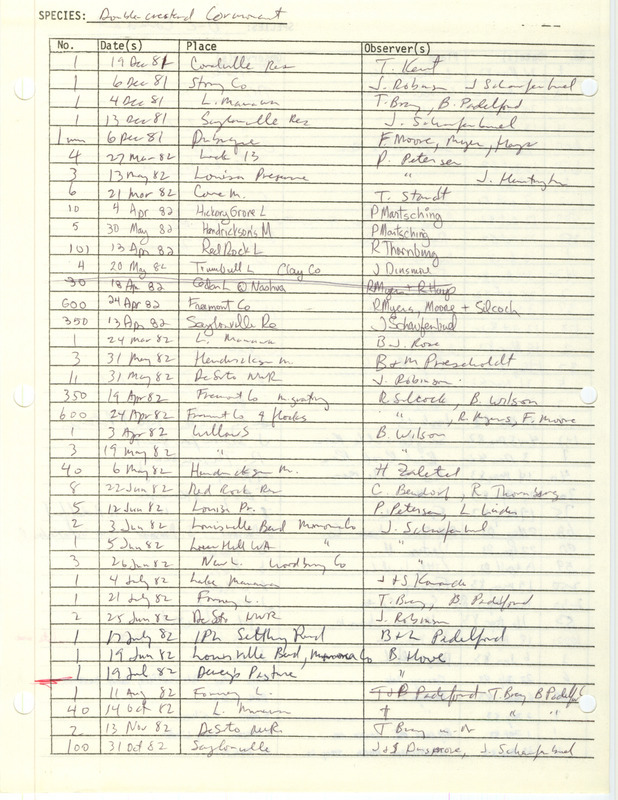 SPECIES: Double crested Cormorant
No. Date(s) Place Observer(s)
1 19 Dec 81 Coralville Res T. Kent
1 6 Dec 81 Story Co J. Robinson J Schaufenbuel
1 4 Dec 81 L. Manawa T. Bray, B. Padelford
1 13 Dec 81 Saylorville Res J. Schaufenbuel
1 imm 6 Dec 81 Dubuque F Moore, Myer, Hays
4 27 Mar 82 Lock 13 P. Petersen
3 13 May 82 Louisa Preserve " J. Huntington
6 21 Mar 82 Cone M. T. Staudt
10 4 Apr 82 Hickory Grove L P Martsching
5 30 May 82 Hendrickson's M P Martsching
101 13 Apr 82 Red Rock L R Thornburg
4 20 May 82 Trumbull L Clay Co J Dinsmore
30 18 Apr 82 Cedar L @ Nashua R Myers + R Hays
600 24 Apr 82 Freemont Co R Myers, Moore + Silcock
350 13 Apr 82 Saylorville Re J Schaufenbuel
1 24 Mar 82 L. Manawa B J. Rose
3 31 May 82 Hendrickson M. B + M Prescholdt
11 31 May 82 DeSoto NWR J. Robinson
350 19 Apr 82 Fremont Co migrating R. Silcock, B. Wilson
600 24 Apr 82 Fremont Co 9 flocks ", R. Myers, F. Moore
1 3 Apr 82 Willow S B. Wilson
3 19 May 82 " "
40 6 May 82 Hendrickson M. H Zaletel
8 22 Jun 82 Red Rock Res C. Bendorf, R. Thornburg
5 12 Jun 82 Louisa Pr. P. Petersen, L. Linder
2 3 Jun 82 Louisville Bend Monona Co J. Schaufenbuel
1 5 Jun 82 Lower Hill WA " "
3 26 Jun 82 New L. Woodbury Co "
1 4 July 82 Lake Manawa J + S
1 21 July 82 Forney L. T. Bray, B. Padelford
2 25 Jun 82 DeSoto NWR J. Robinson
1 17 July 82 IPL Settling Pond B + L Padelford
1 19 Jun 82 Louisville Bend, Monona Co B. Howe
1 19 Jul 82 Dewey's Pasture "
1 11 Aug 82 Forney L. Padelford T Bray B Padelford
40 14 Oct 82 L. Manawa " "
2 13 Nov 82 DeSoto NWR T Bray
100 31 Oct 82 Saylorville J + J Dinsmore, J. Schaufenbuel